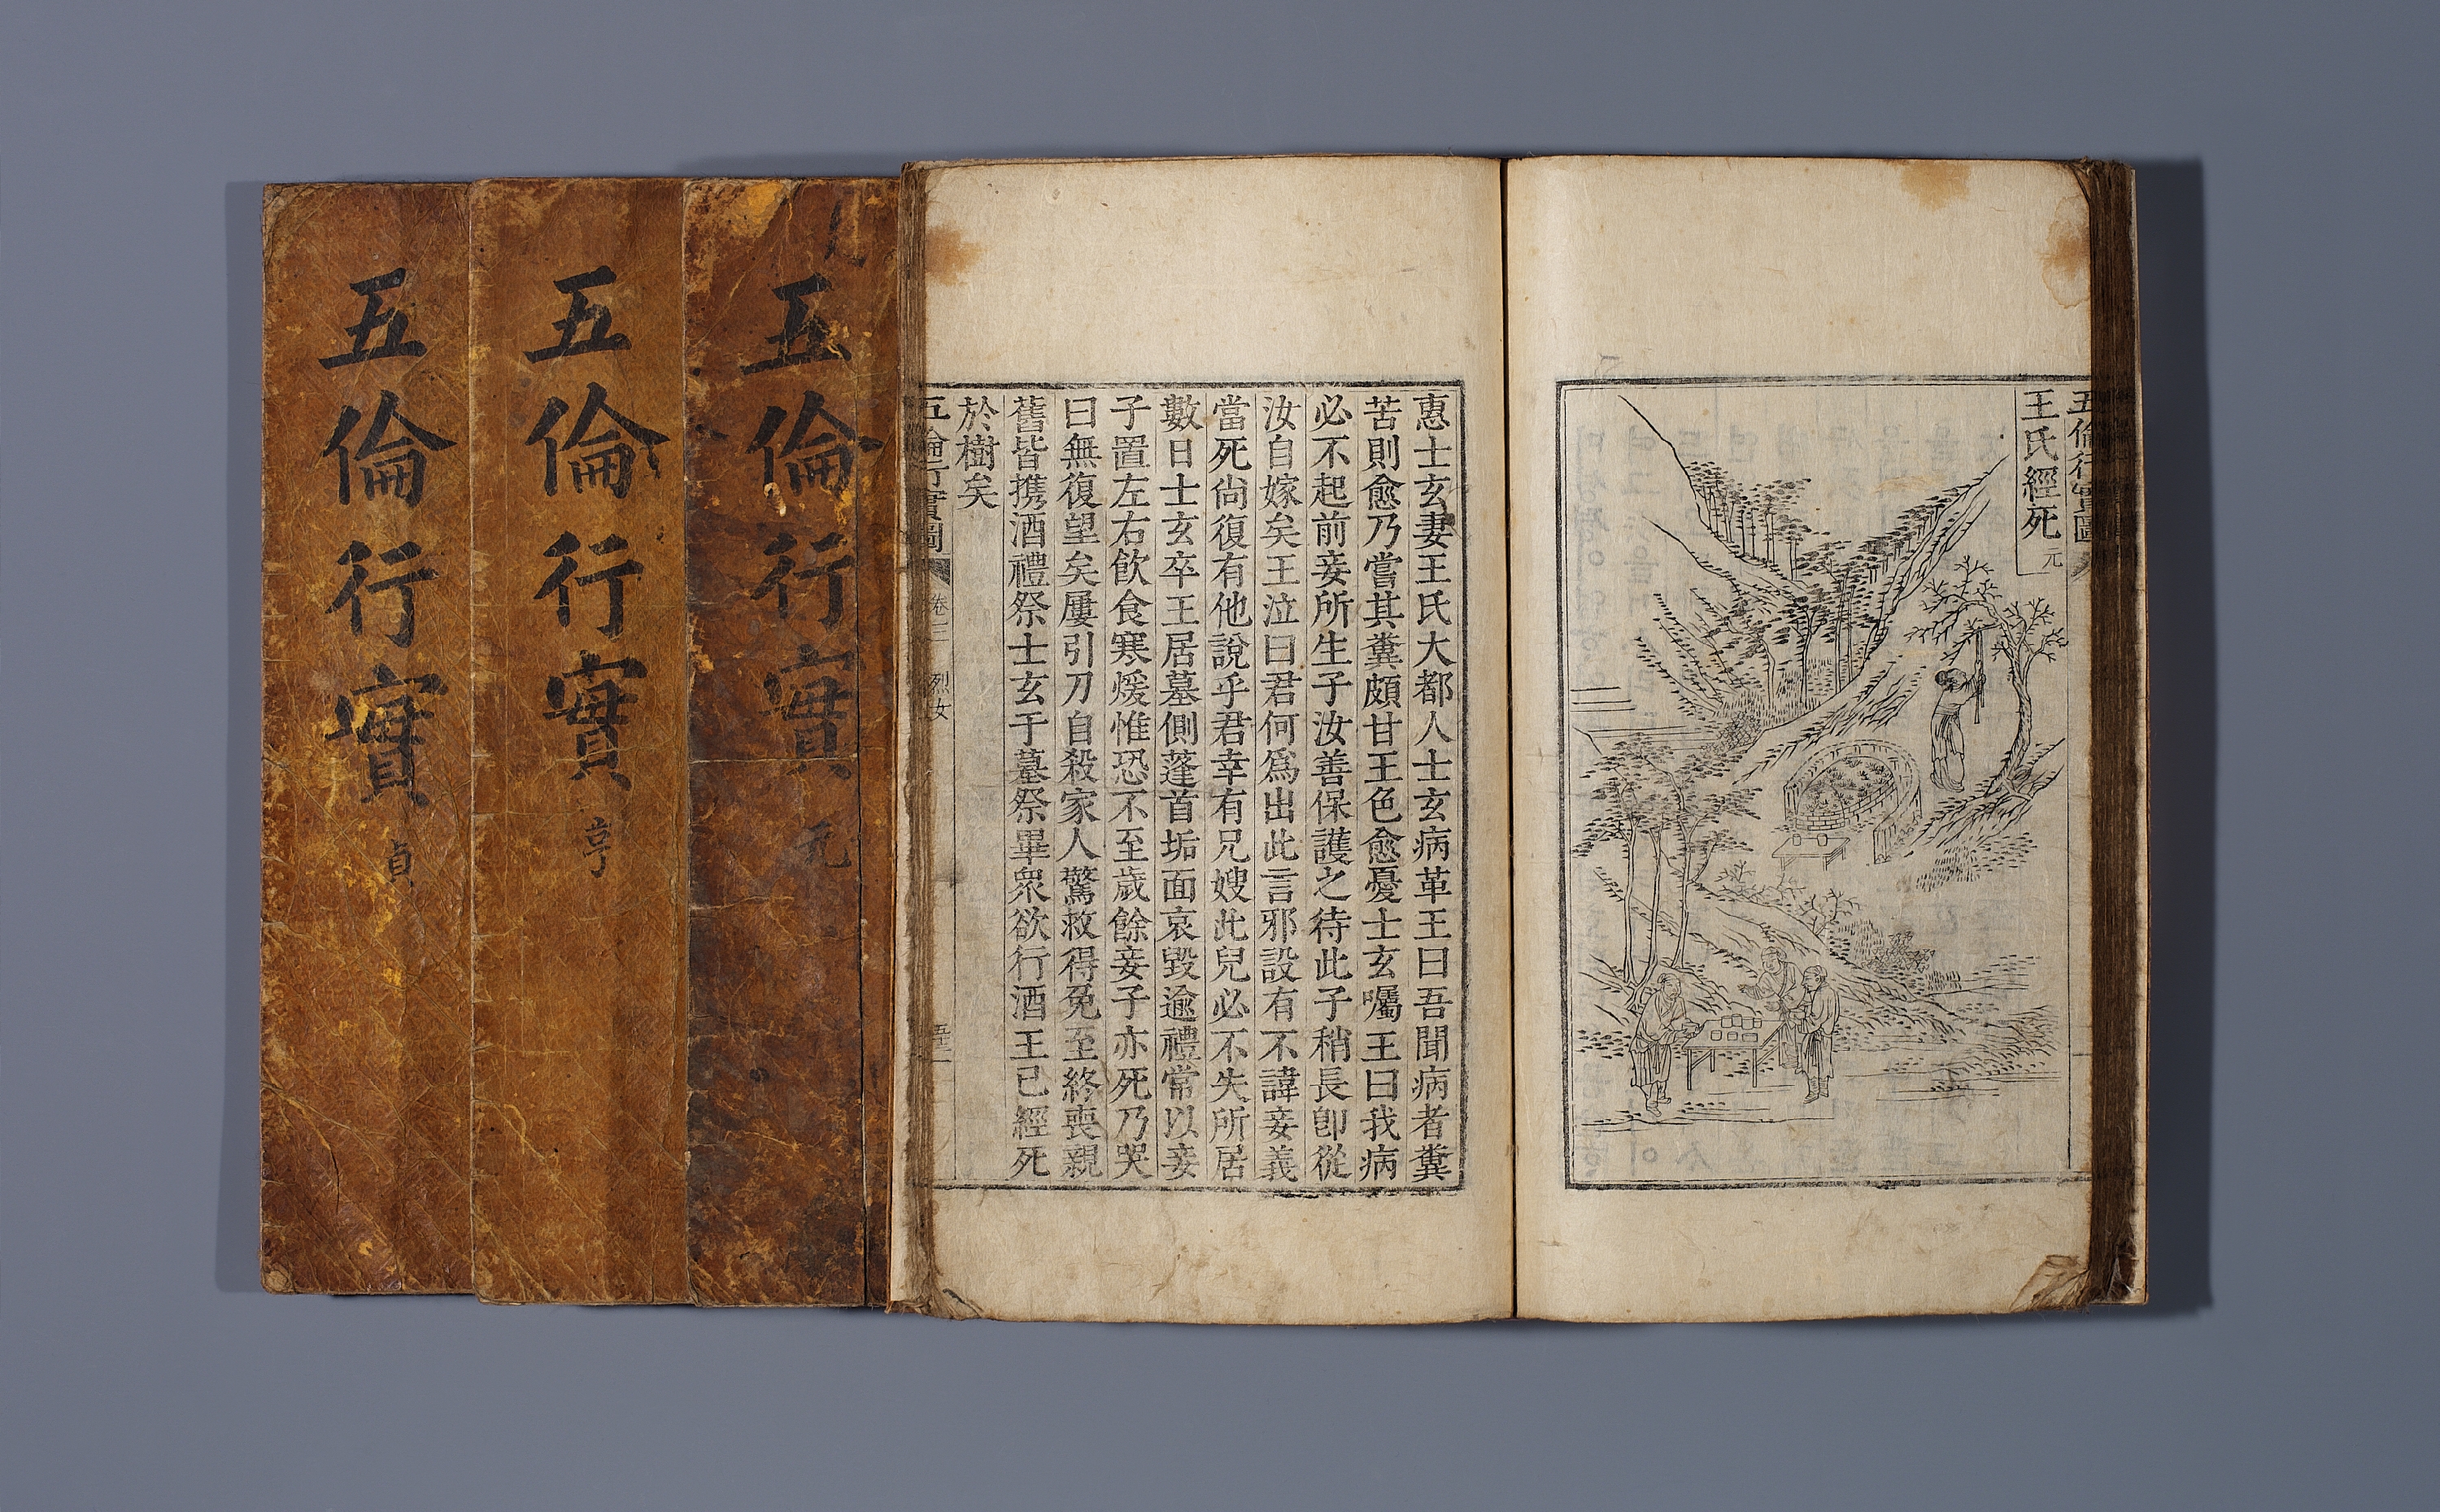 五倫行實圖
王氏經死 元
惠士玄妻王氏大都人士玄病革王曰吾聞病者糞
苦則愈乃嘗其糞頗甘王色愈憂士玄囑王曰我病
必不起前妾所生子汝善保護之待此子稍長卽從
汝自嫁矣王泣曰君何爲出此言邪設有不諱妾義
當死尙復有他說乎君幸有兄嫂此兒必不失所居
數日士玄卒王居墓側蓬首垢面哀毀逾禮常以妾
子置左右飮食寒煖惟恐不至歲餘妾子亦死乃哭
曰無復望矣屢引刀自殺家人驚救得免至終喪親
舊皆携酒禮祭士玄于墓祭畢衆欲行酒王已經死
於樹矣
五倫行實圖 卷三 烈女
五倫行實 元
五倫行實 亨
五倫行實 貞